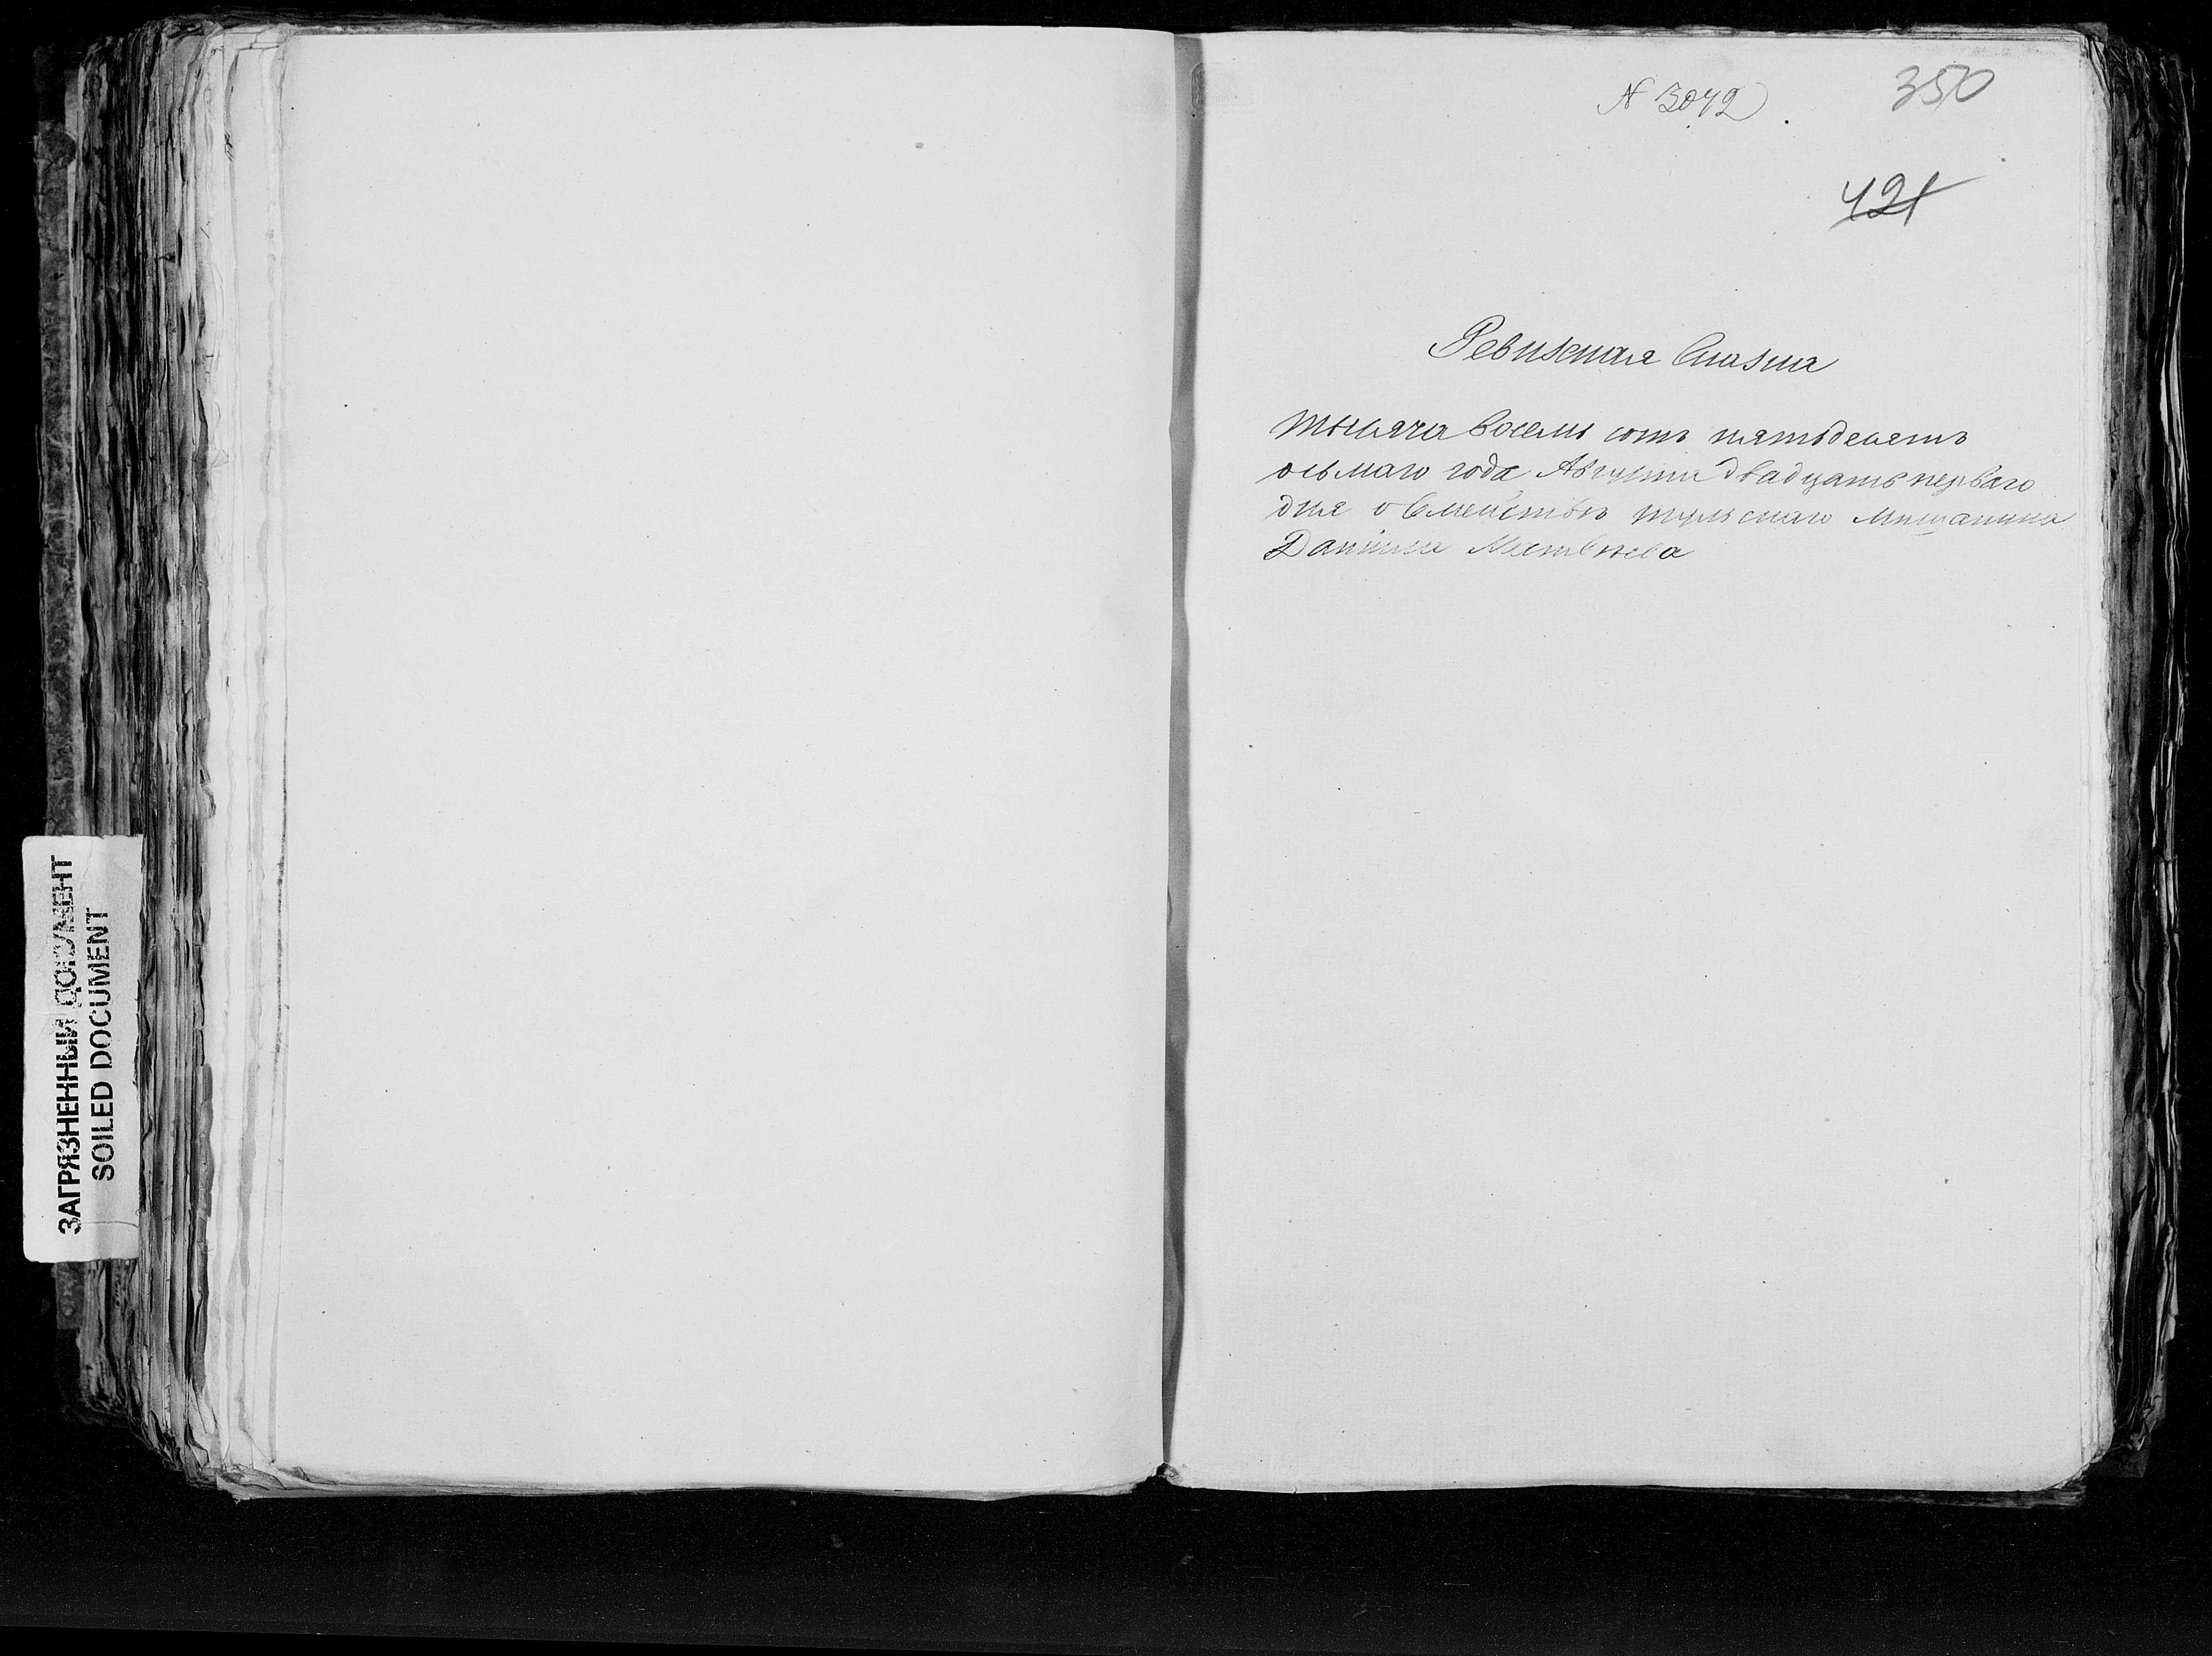 N 3072
350
421
Ревизская Сказка
тысяча восемь сотъ пятьдесятъ
осьмаго года Августа двадцать перваго
дня о Семействѣ тульскаго Мищанина
Данiила Матвѣева
ЗАГРЯЗНЕННЫЙ ДОКУМЕНТ
SOILED DOCUMENT